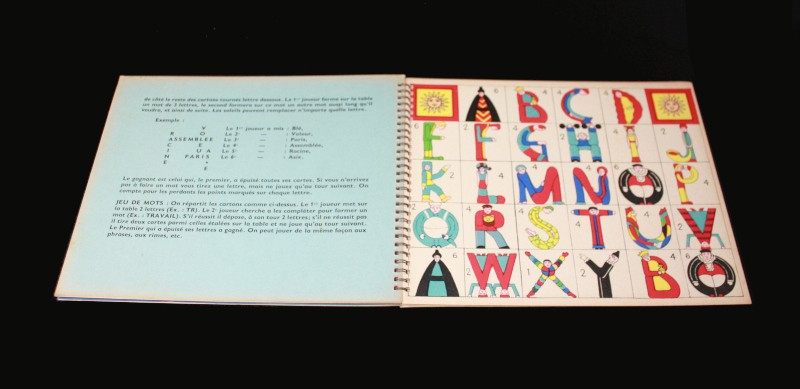 de côté le reste des cartons tournés lettre dessous. Le 1er joueur forme sur la table
un mot de 3 lettres, le second formera sur ce mot un autre mot aussi long qu'il
voudra, et ainsi de suite. Les soleils pourront remplacer n'importe quelle lettre.
Exemple :
V Le 1er joueur a mis : Blé,
B O Le 2e — : Valeur,
ASSEMBLEE Le 3e — : Paris,
C E L Le 4e — : Assemblée,
I U A Le 5e — : Racine,
N PARIS Le 6e — : Asie.
E
E
Le gagnant est celui qui, le premier, a épuisé toutes ses cartes. Si vous n'arrivez
pas à faire un mot vous tirez une lettre, mais ne jouez qu'au tour suivant. On
compte pour les perdants les points marqués sur chaque lettre.
JEU DE MOTS : On répartit les cartons comme ci-dessus. Le 1er joueur met sur
la table 2 lettres (Ex. : TR). Le 2e joueur cherche à les compléter pour former un
mot (Ex. : TRAVAIL). S'il réussit il dépose, à son tour 2 lettres; s'il ne réussit pas
il tire deux cartes parmi celles étalées sur la table et ne joue qu'au tour suivant.
Le Premier qui a épuisé ses lettres a gagné. On peut jouer de la même façon aux
phrases, aux rimes, etc.
A B C D
E F G H I J
K L M N O P
Q R S T U V
A W X Y B O